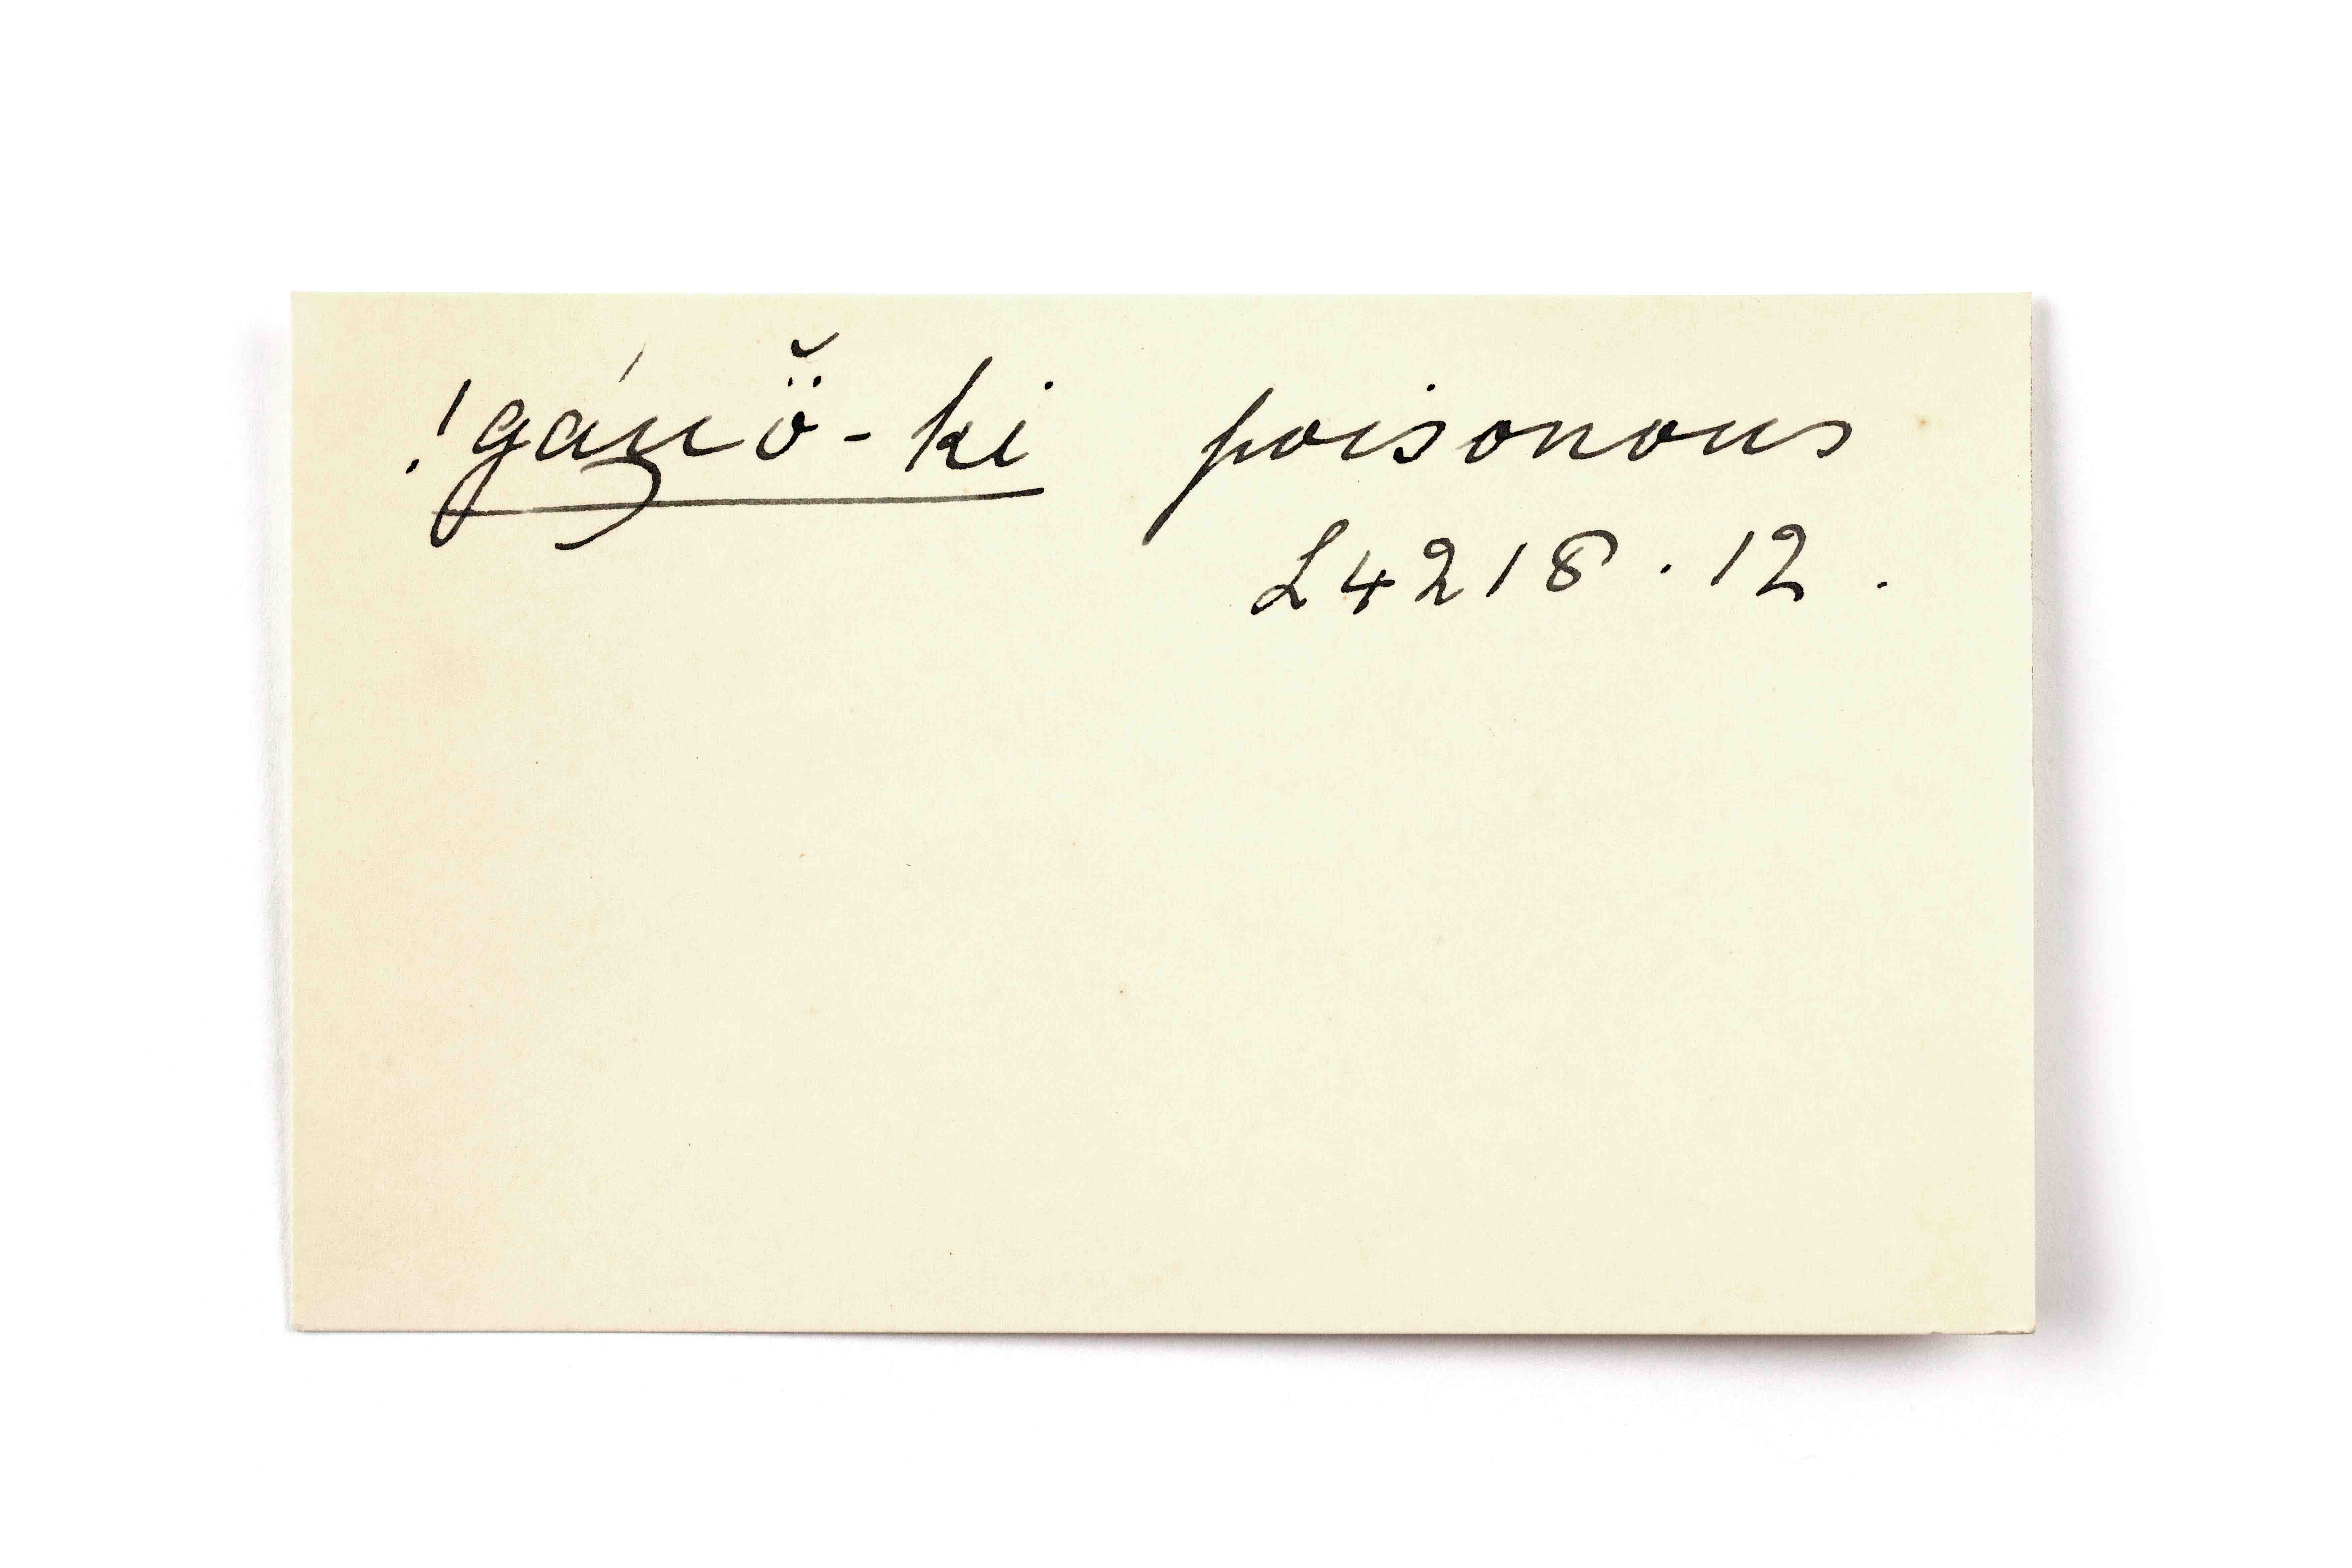 !gáṷö̆-ki poisonous
L4218.12.